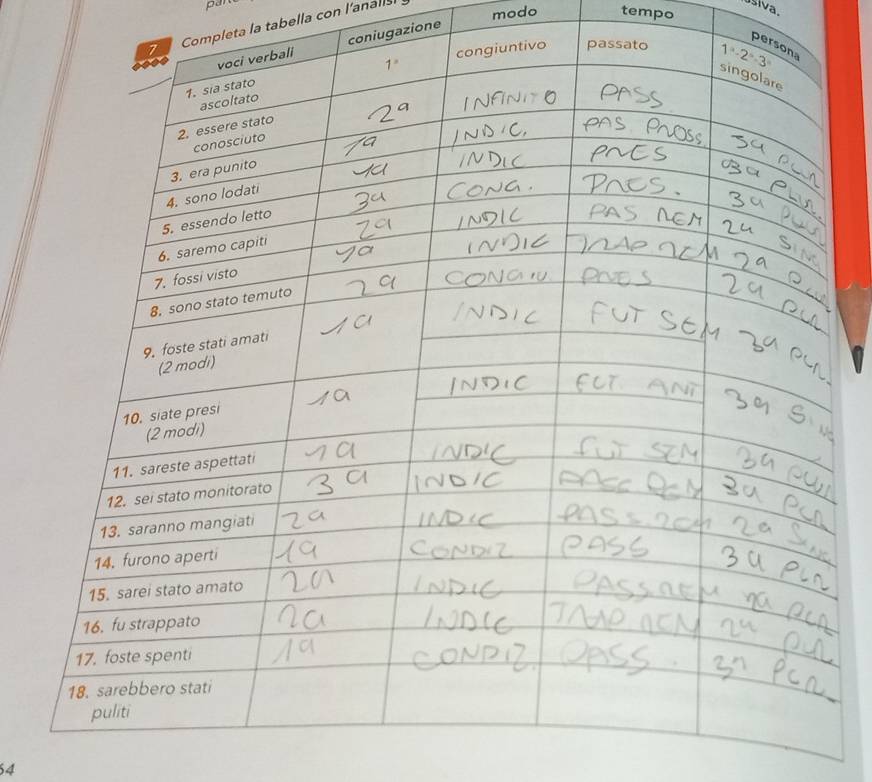 7 Completa la tabella con l'analisi
voci verbali coniugazione modo tempo persona
1. sia stato ascoltato 1ª congiuntivo passato 1ª-2ª-3ª singolare
2. essere stato conosciuto 2a INFINITO PASS
3. era punito 1a INDIC. PAS PROSS 3a PLUR
4. sono lodati 1a INDIC PRES 3a PLUR
5. essendo letto 3a CONG. PRES. 3a PLUR
6. saremo capiti 2a INDIC PAS REM 2a SING
7. fossi visto 1a INDIC TRAP REM 2a PLUR
8. sono stato temuto 2a CONGIU PRES 2a PLUR
9. foste stati amati (2 modi) 1a INDIC FUT SEM 3a PLUR.
10. siate presi (2 modi) 1a INDIC FUT ANT 3a SING
11. sareste aspettati 1a INDIC FUT SEM 3a PLUR
12. sei stato monitorato 3a INDIC PASS REM 3a PLUR
13. saranno mangiati 2a INDIC PASS REM 2a SING
14. furono aperti 1a CONDIZ PASS 3a PLUR
15. sarei stato amato 2a INDIC PASS REM 1a PLUR
16. fu strappato 2a INDIC TRAP REM 2a PLUR
17. foste spenti 1a CONDIZ. PASS. 3a PLUR
18. sarebbero stati puliti
64